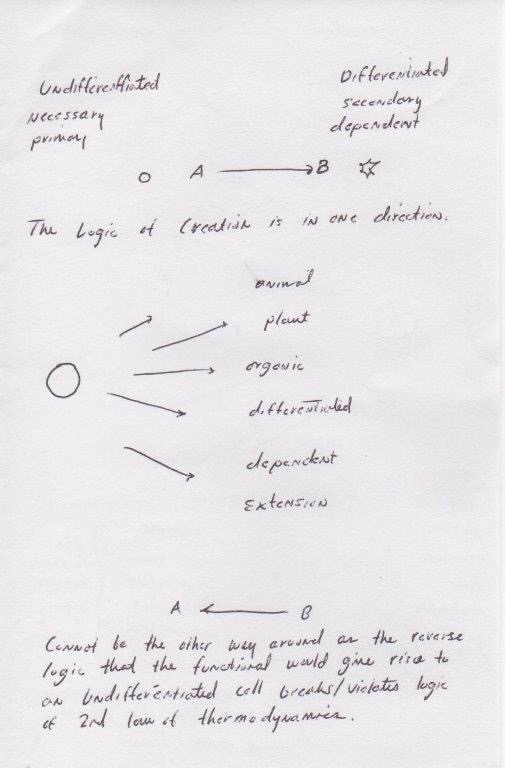 Undifferentiated
necessary
primary
Differentiated
secondary
dependent
A B
The Logic of Creation is in one direction.
animal
plant
organic
differentiated
dependent
Extension
A B
Cannot be the other way around as the reverse
logic that the functional would give rise to
an undifferentiated cell breaks/violates logic
of 2nd law of thermodynamics.